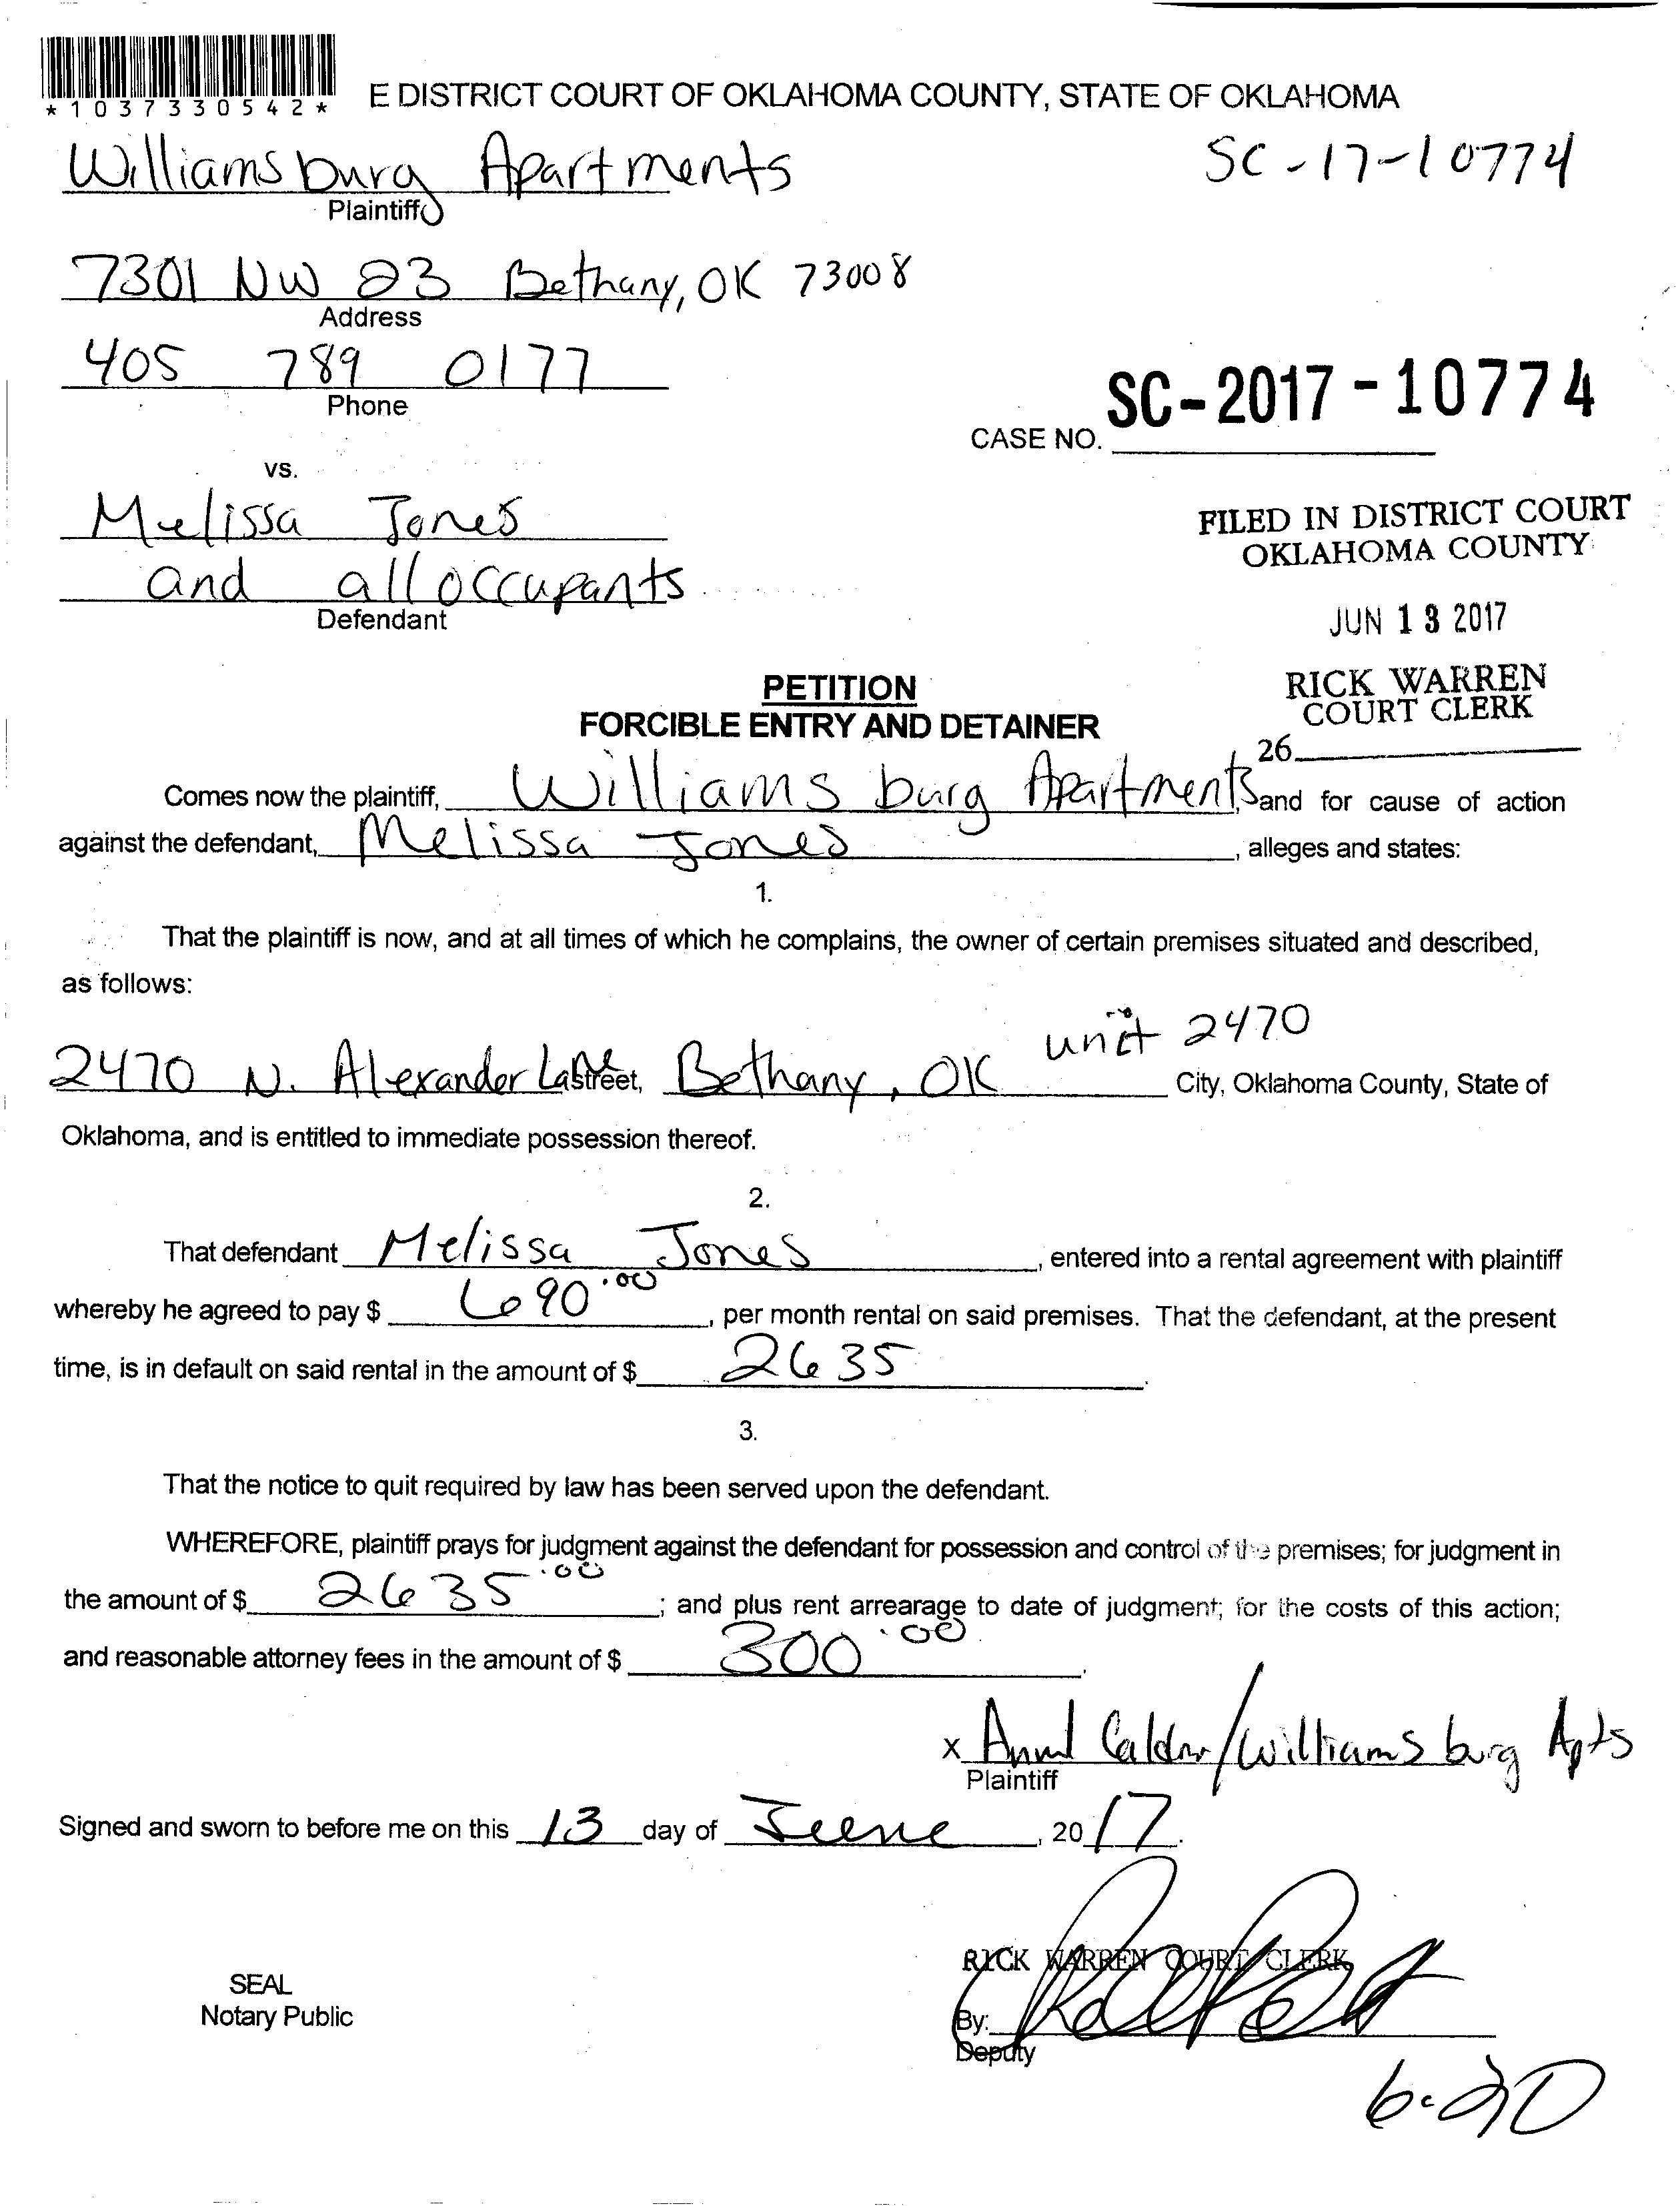 *1037330542*
E DISTRICT COURT OF OKLAHOMA COUNTY, STATE OF OKLAHOMA
Williamsburg Apartments
SC-17-10774
Plaintiff
7301 NW 23 Bethany, OK 73008
Address
405 789 0177
Phone
SC-2017-10774
CASE NO.
vs.
Melissa Jones
and all occupants
Defendant
FILED IN DISTRICT COURT
OKLAHOMA COUNTY
JUN 13 2017
RICK WARREN
COURT CLERK
26
PETITION
FORCIBLE ENTRY AND DETAINER
Comes now the plaintiff, Williamsburg Apartments, and for cause of action
against the defendant, Melissa Jones, alleges and states:
1.
That the plaintiff is now, and at all times of which he complains, the owner of certain premises situated and described,
as follows:
unit 2470
2470 N. Alexander Lane Street, Bethany, OK City, Oklahoma County, State of
Oklahoma, and is entitled to immediate possession thereof.
2.
That defendant Melissa Jones, entered into a rental agreement with plaintiff
whereby he agreed to pay $ 690.00, per month rental on said premises. That the defendant, at the present
time, is in default on said rental in the amount of $ 2635.
3.
That the notice to quit required by law has been served upon the defendant.
WHEREFORE, plaintiff prays for judgment against the defendant for possession and control of the premises; for judgment in
the amount of $ 2635.00; and plus rent arrearage to date of judgment; for the costs of this action;
and reasonable attorney fees in the amount of $ 300.00.
x /Williamsburg Apts
Plaintiff
Signed and sworn to before me on this 13 day of June, 2017.
RICK WARREN COURT CLERK
SEAL
Notary Public
By:
Deputy
6-20